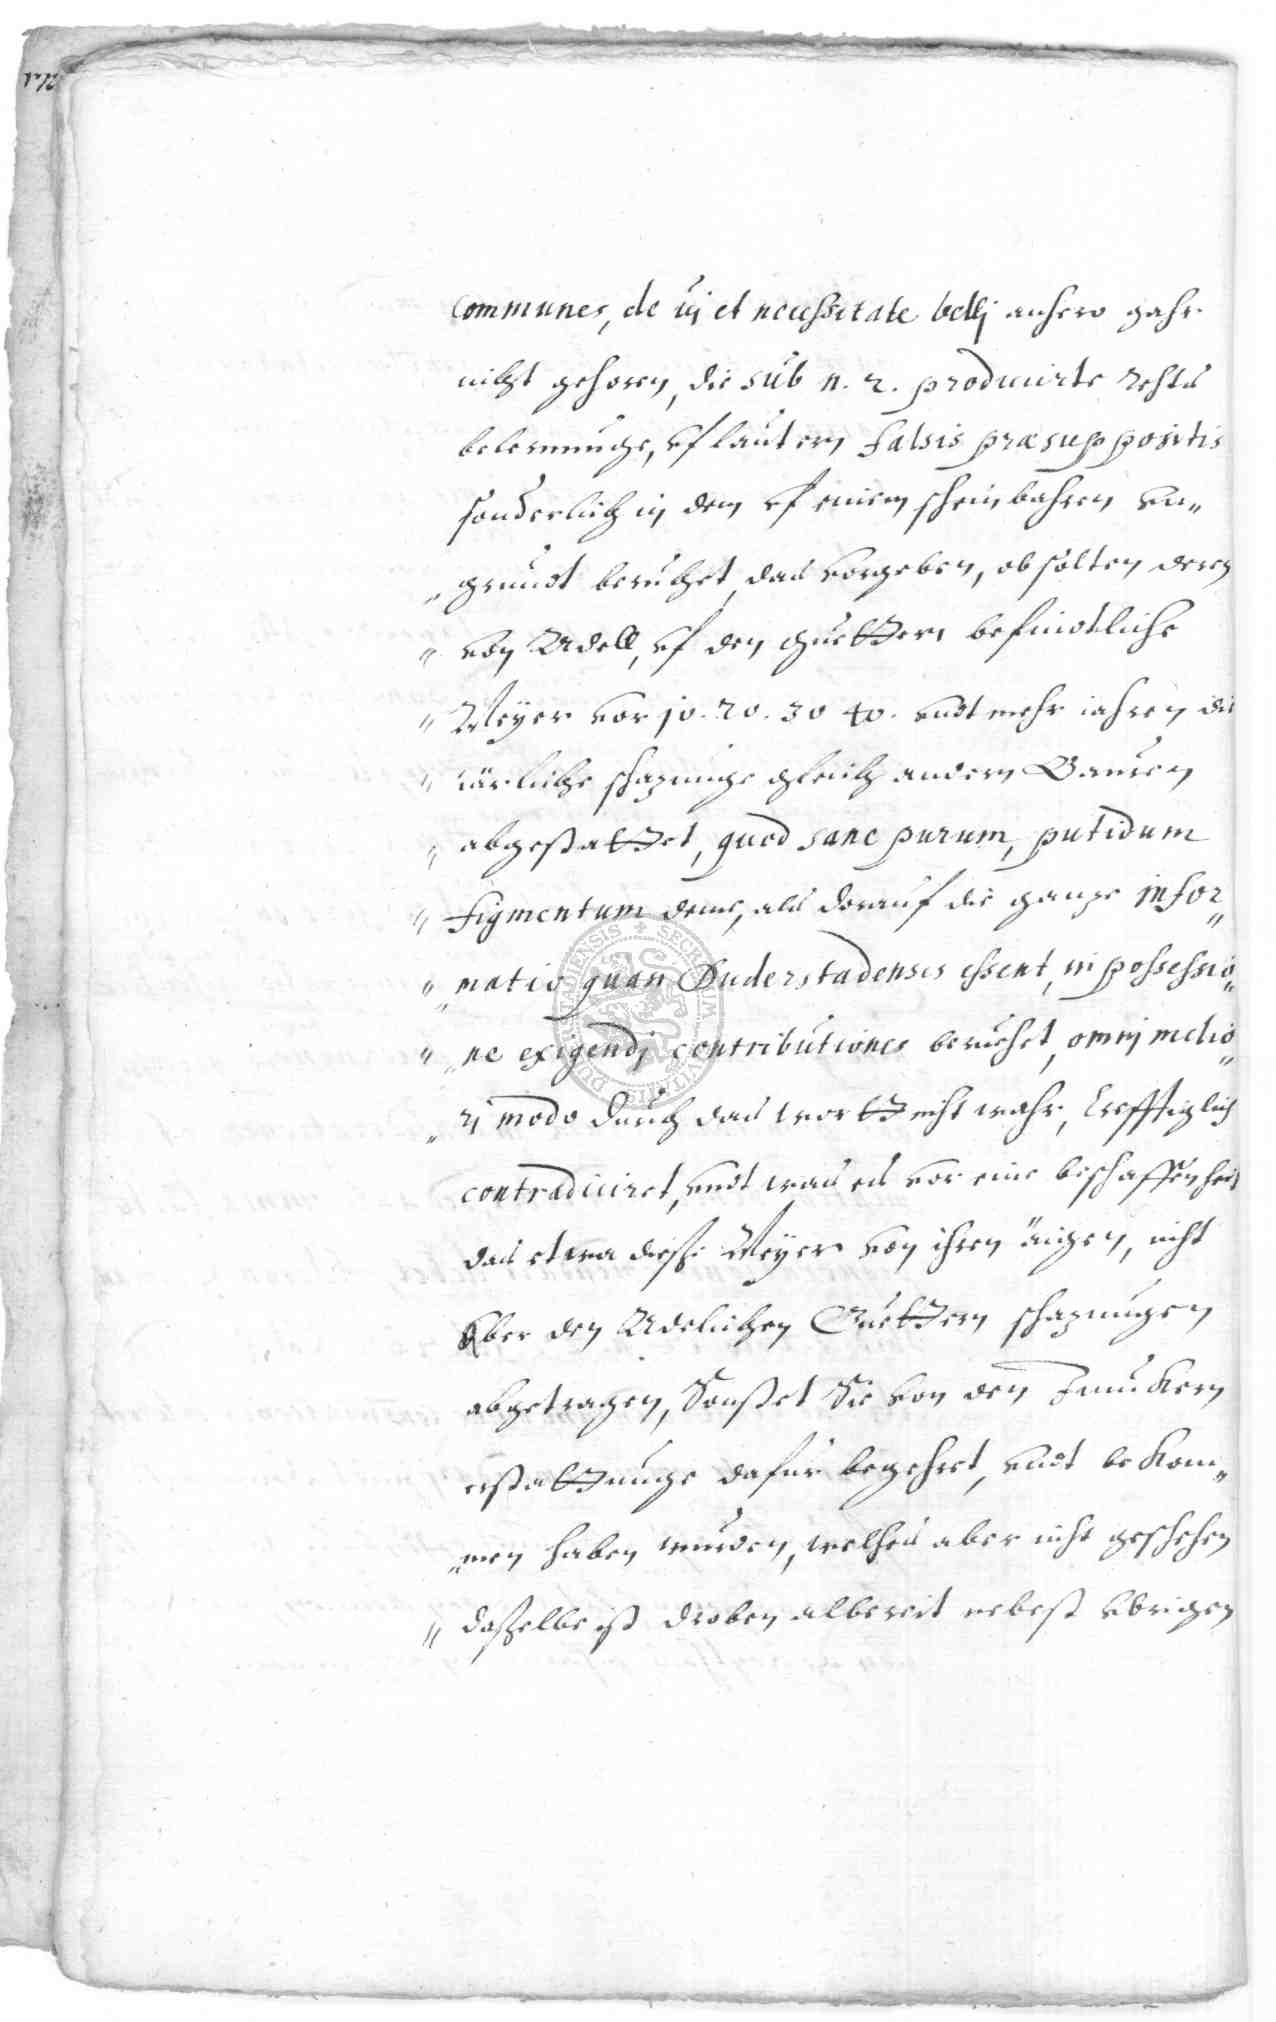 communes, de vi et necessitate bellj anhero gahr
nicht gehoren, die sub n. 2. producirte rechts
belernunge, vf lautern falsis præsuppositis
sonderlich in dem vf einem scheinbahren vn„
„grundt beruhet, das vorgeben, ob solten deren
„ von Adell, vf den guettern befindtliche
„ Meyer vor 10. 20. 30 40. vndt mehr iahren die
„ järliche schazunge gleich andern Bauren
„ abgestattet, quod sane purum, putidum
„ figmentum deme, als darauf die ganze infor„
„ „matio quasi Duderstadenses essent, in possessio„
„ „ne exigendj contributiones beruhet, omnj melio„
„rj modo durch das wortt nicht wahr, krefftiglich
contradiciret, vndt was es vor eine beschaffenheit
das etwa diese Meyer von ihren äigen, nicht
Aber den Adelichen Guettern schazungen
abgetragen, Sonstet Sie von den Junckern
erstattunge dafür begehret, vndt bekom„
„men haben wurden, welches aber nicht geschehen
„ dasselbe ist droben albereit nebest vbrigen
SECRETUM CIVITATIS DUDERSTADIENSIS